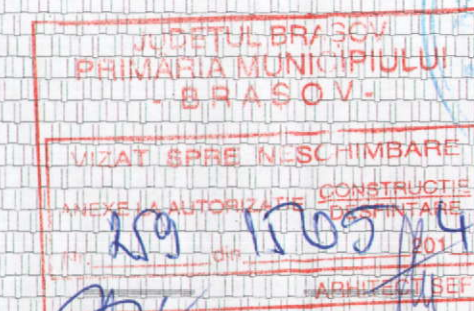 JUDETUL BRASOV
PRIMARIA MUNICIPIULUI
- BRASOV -
VIZAT SPRE NESCHIMBARE
ANEXE LA AUTORIZATIE CONSTRUCTIE
DESFIINTARE
Nr. 259 din 15 05 2014
ARHITECT SEF